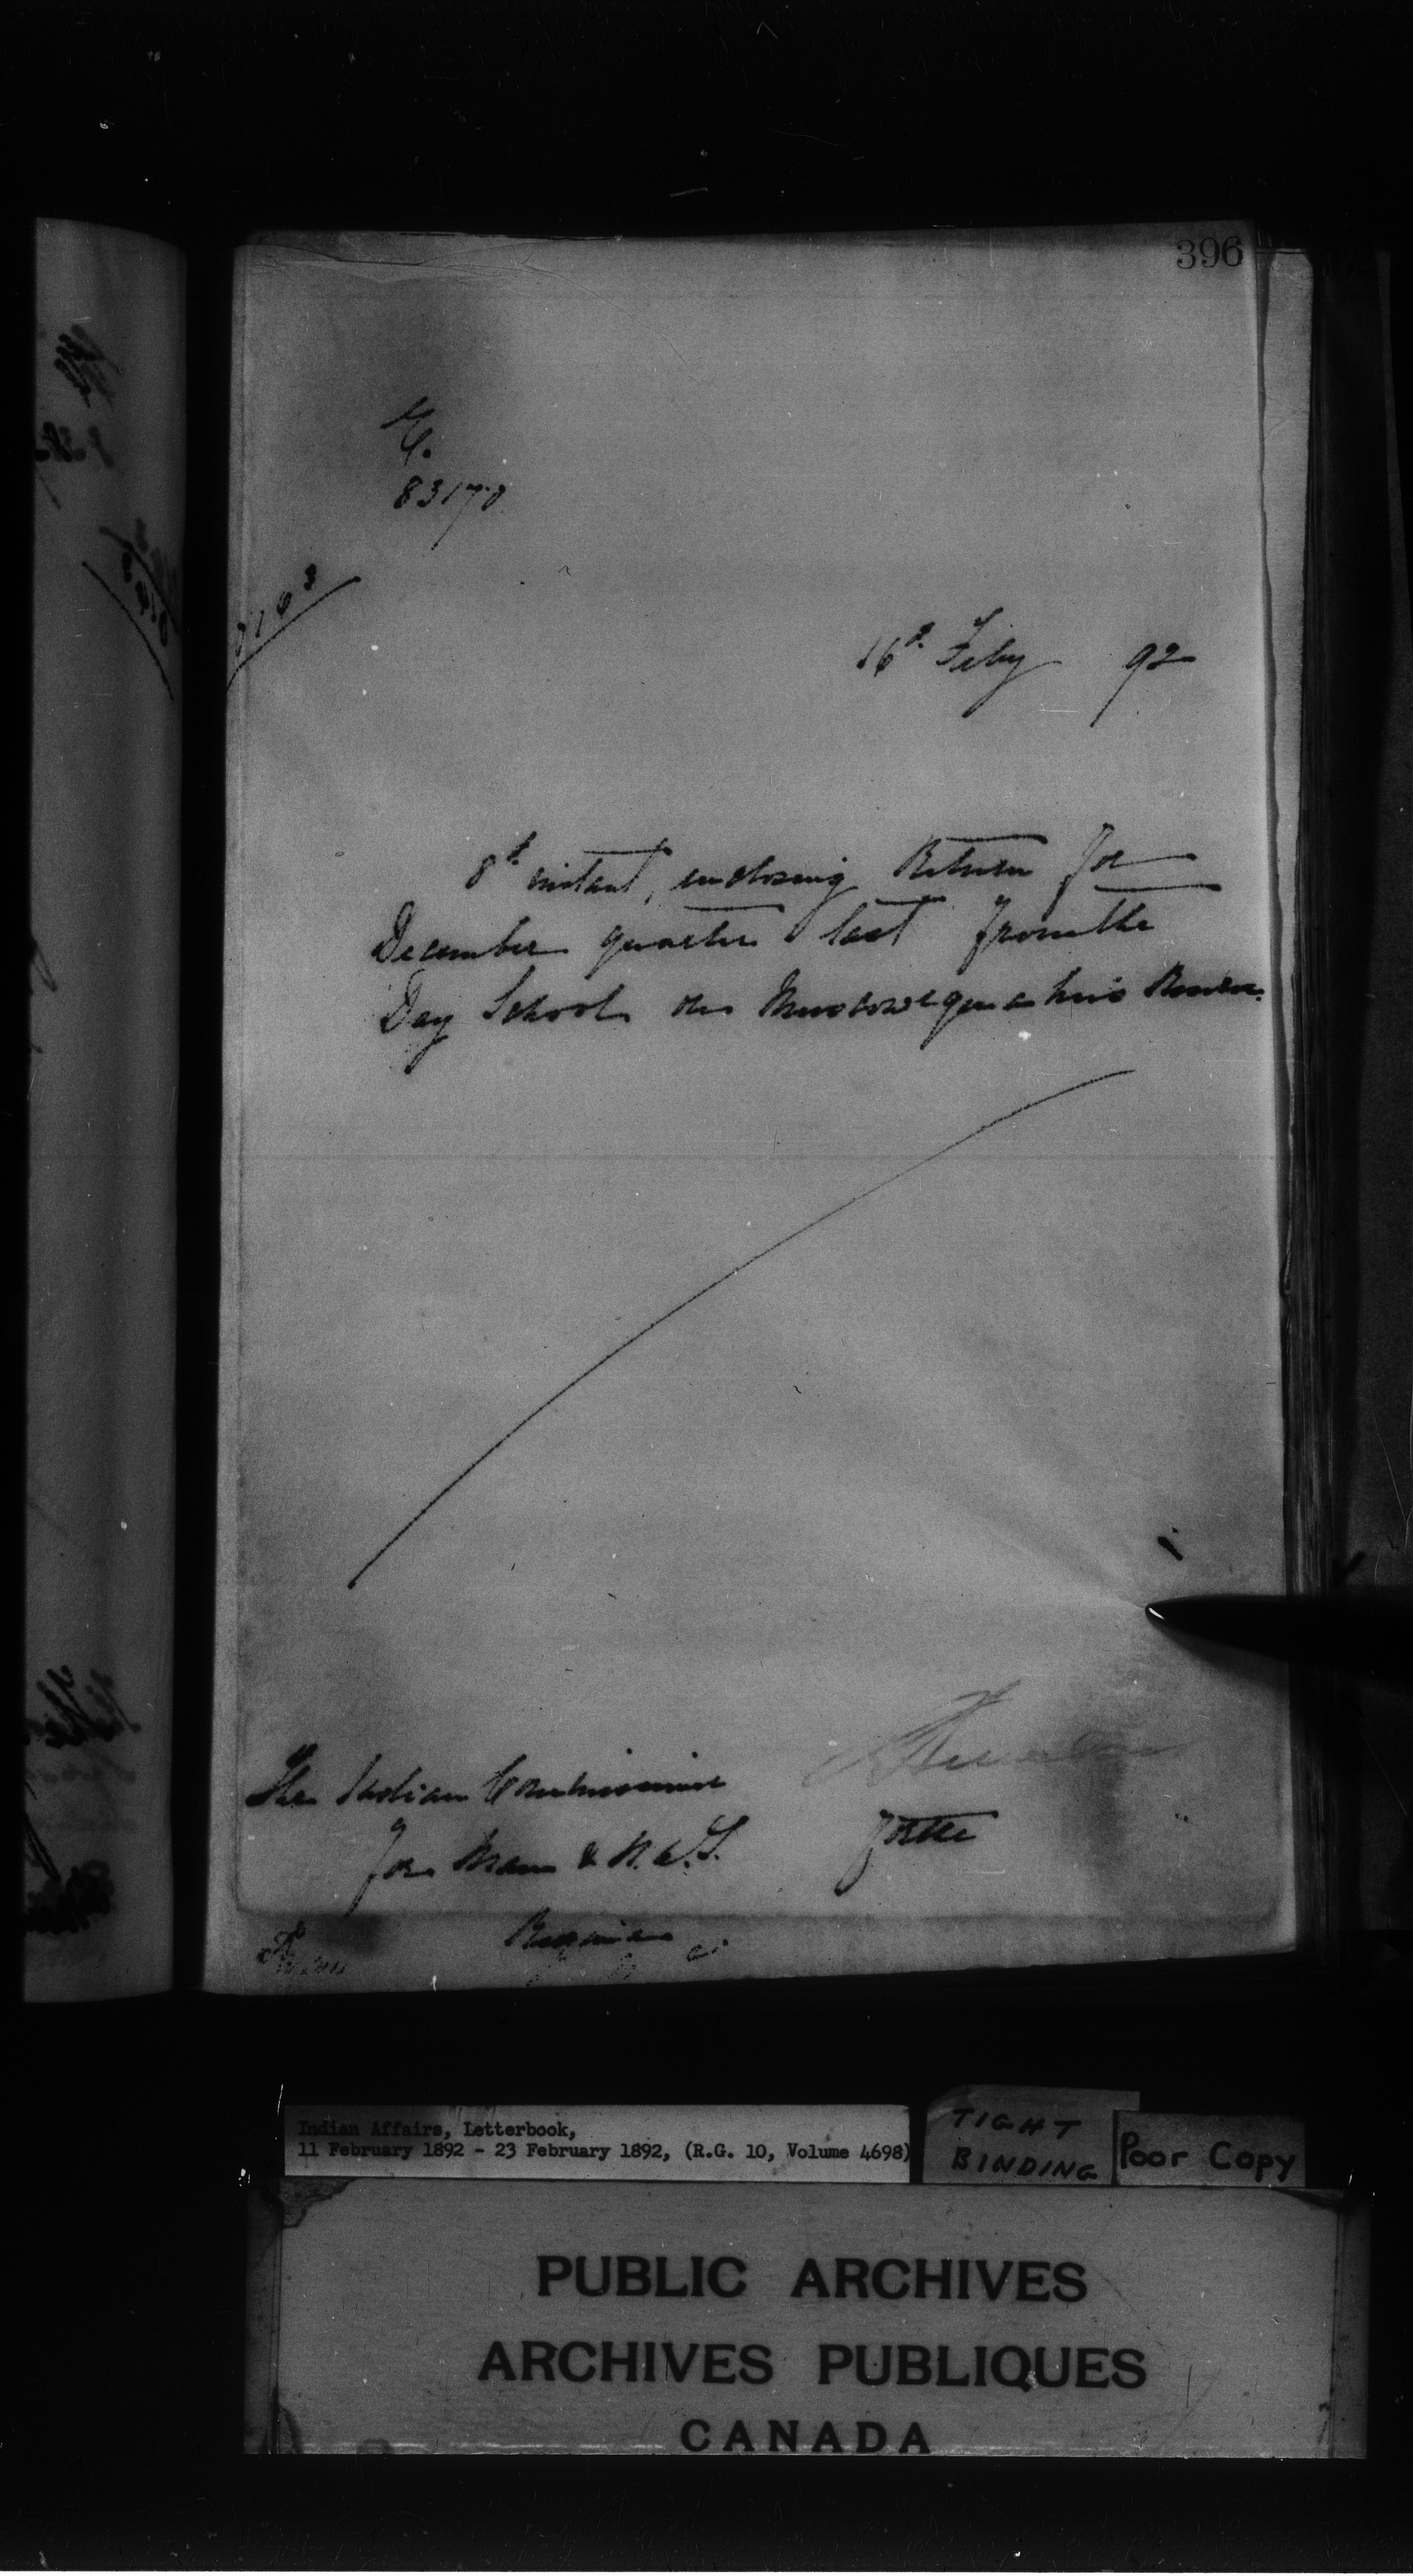 396
83170
7163
16th Feby 92
8th instant, enclosing Return for
December quarter last from the
Day School on Muscowequahn's Reserve.
The Indian Commissioner
for Man & N.W.T.
for the
Regina
Indian Affairs, Letterbook,
11 February 1892 - 23 February 1892, (R.G. 10, Volume 4698)
TIGHT
BINDING
Poor Copy
PUBLIC ARCHIVES
ARCHIVES PUBLIQUES
CANADA